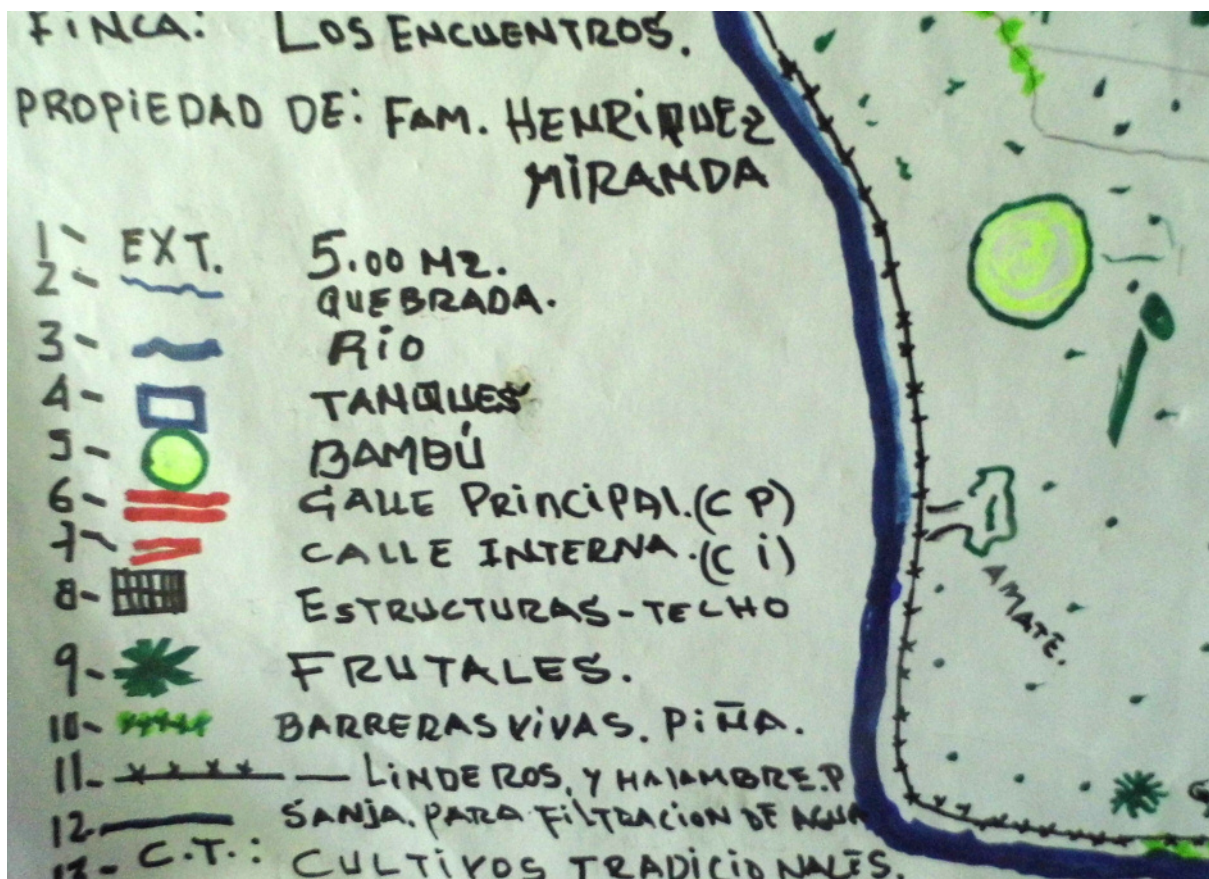 FINCA: LOS ENCUENTROS.
PROPIEDAD DE: FAM. HENRIQUEZ
MIRANDA
1- EXT. 5.00 MZ.
2- QUEBRADA.
3- RIO
4- TANQUES
5- BAMBÚ
6- CALLE PRINCIPAL. (C P)
7- CALLE INTERNA. (C i)
8- ESTRUCTURAS-TECHO
9- FRUTALES.
10- BARRERAS VIVAS. PIÑA.
11- LINDEROS, Y HALAMBRE.P
12- SANJA. PARA FILTRACION DE AGUA
13- C.T.: CULTIVOS TRADICIONALES.
AMATE.